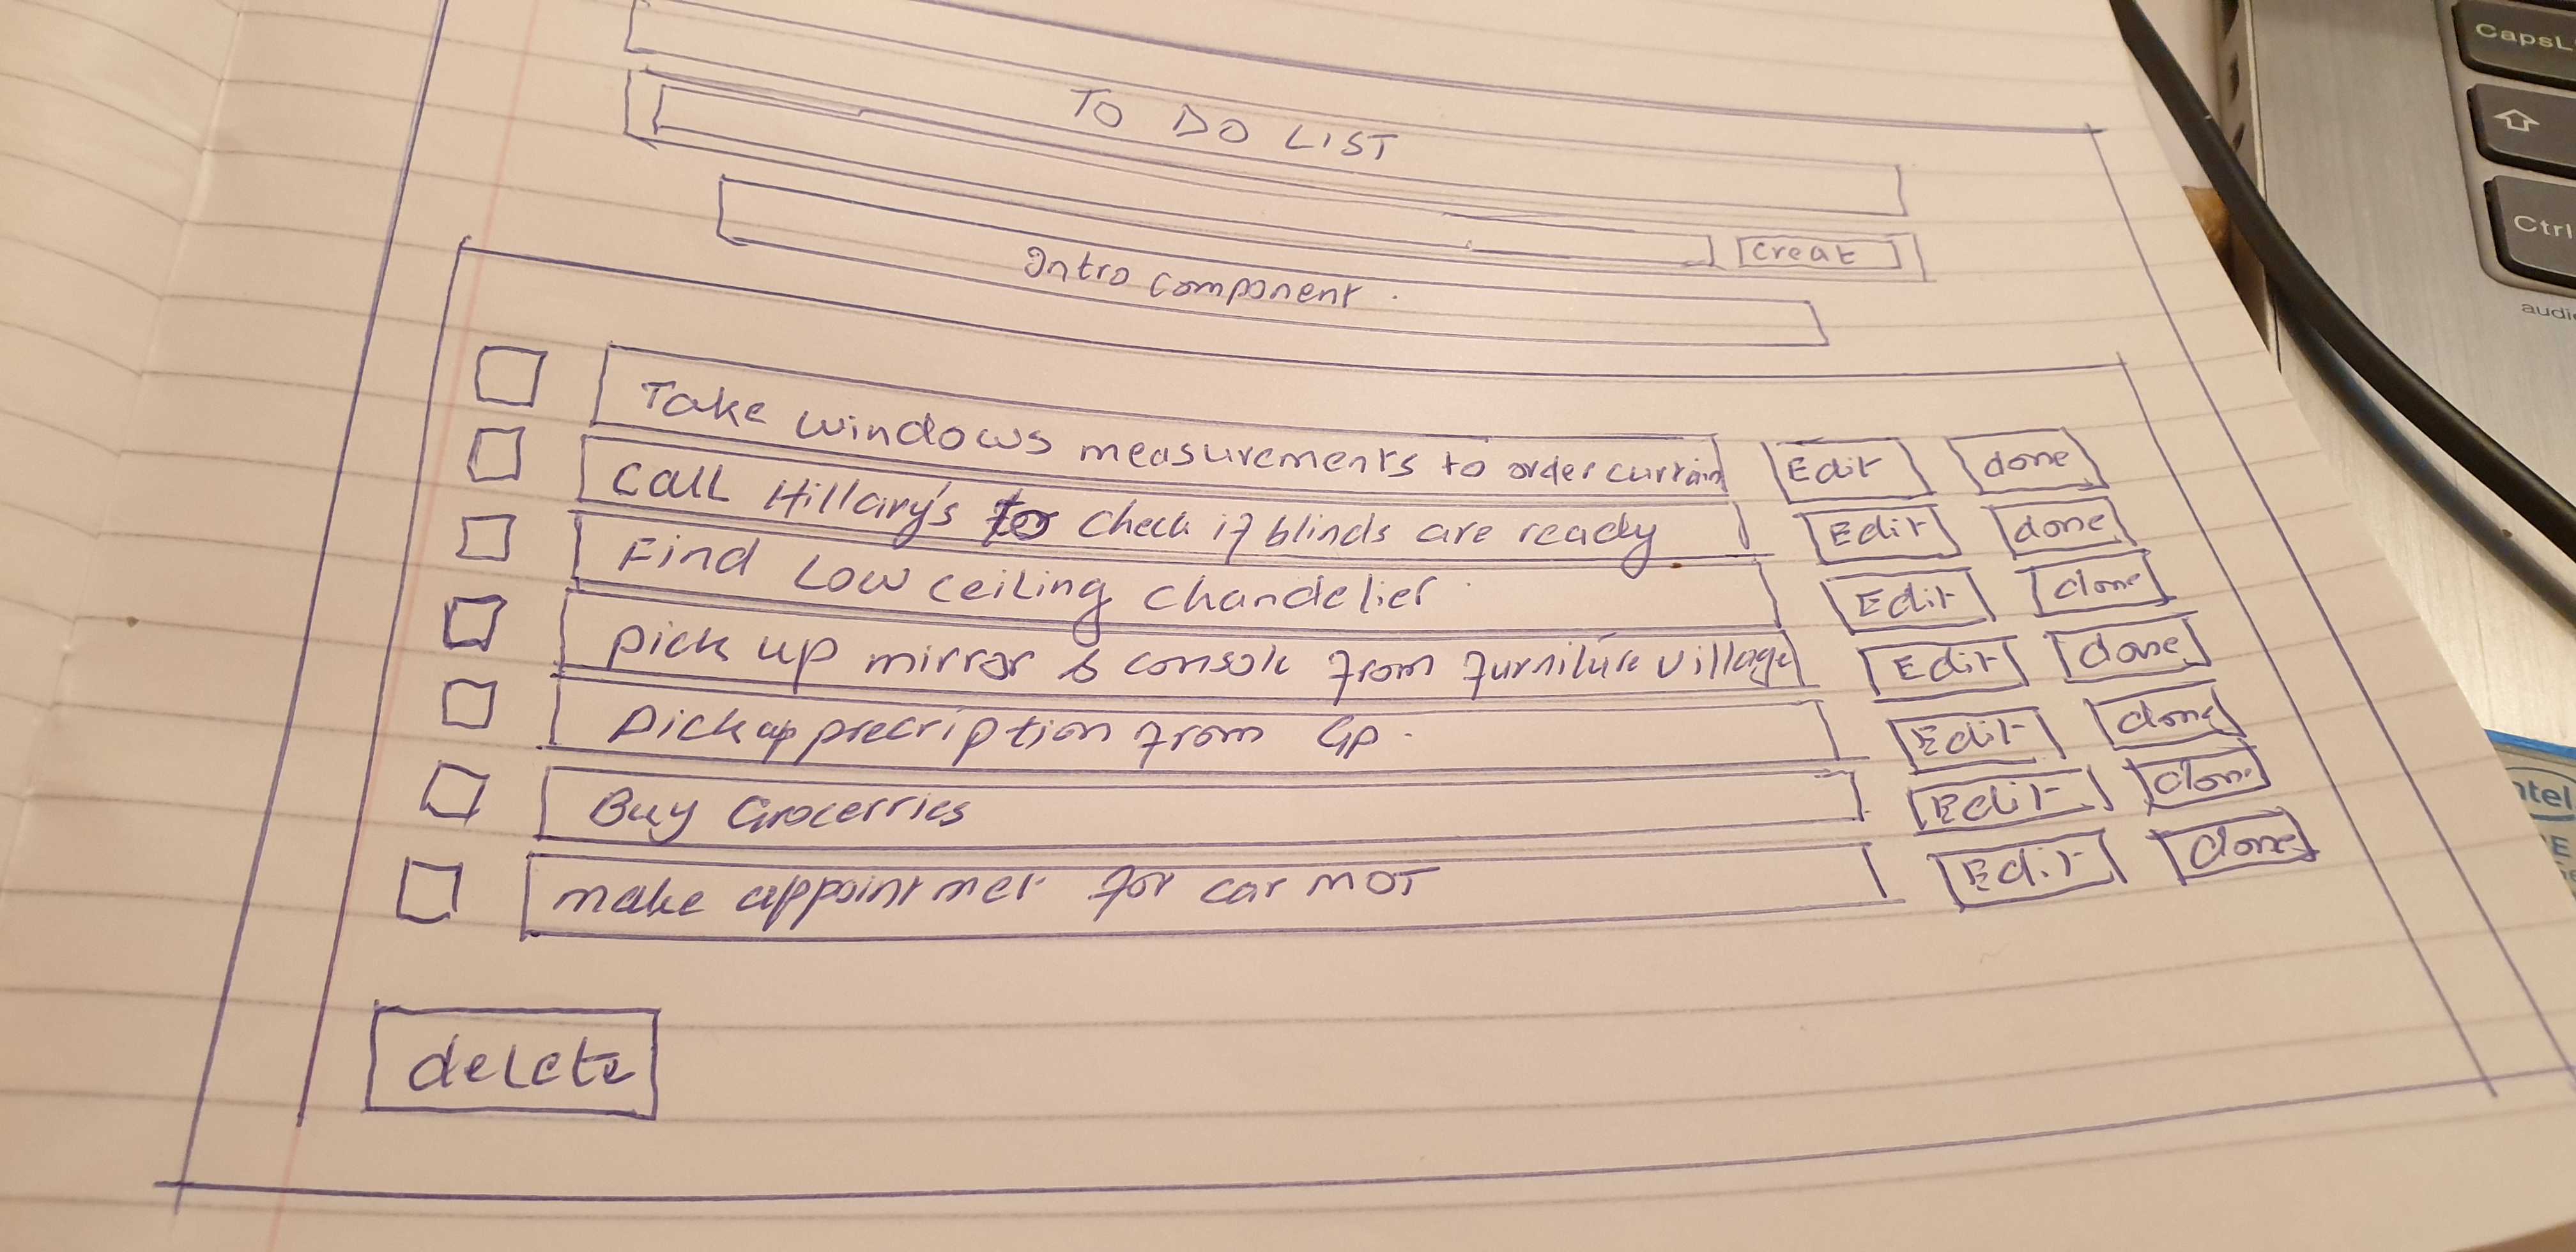 TO DO LIST
Creat
Intro Component.
Take windows measurements to order curtain Edit done
Call Hillary's to check if blinds are ready Edit done
Find Low ceiling chandelier Edit done
Pick up mirror & console from furniture village Edit done
Pick up precription from Gp. Edit done
Buy Grocerries Edit done
make appointmet for car MOT Edit done
delete
CapsL
Ctrl
audi
ntel